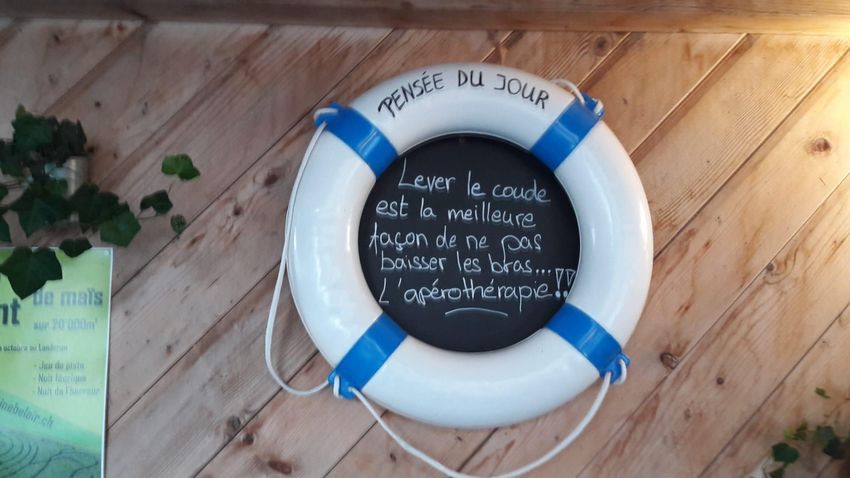 PENSÉE DU JOUR
Lever le coude
est la meilleure
façon de ne pas
baisser les bras...
L'apérothérapie!!
de maïs
sur 20'000m²
- Jeu de piste
- Nuit féerique
- Nuit de l'horreur